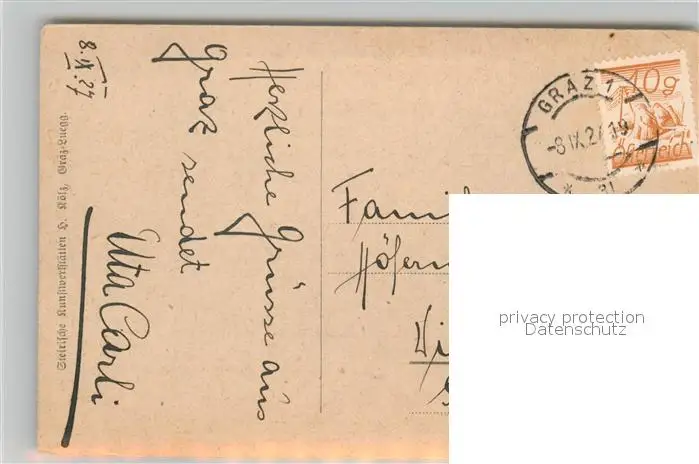 8.IX.27
Herzliche Grüsse aus
Graz sendet
Uta Carli
Steirische Kunstwerkstätten H. Kölz, Graz-Luegg.
GRAZ 1
-8.IX.27 18
10g
Österreich
Famil
Höfern
privacy protection
Datenschutz